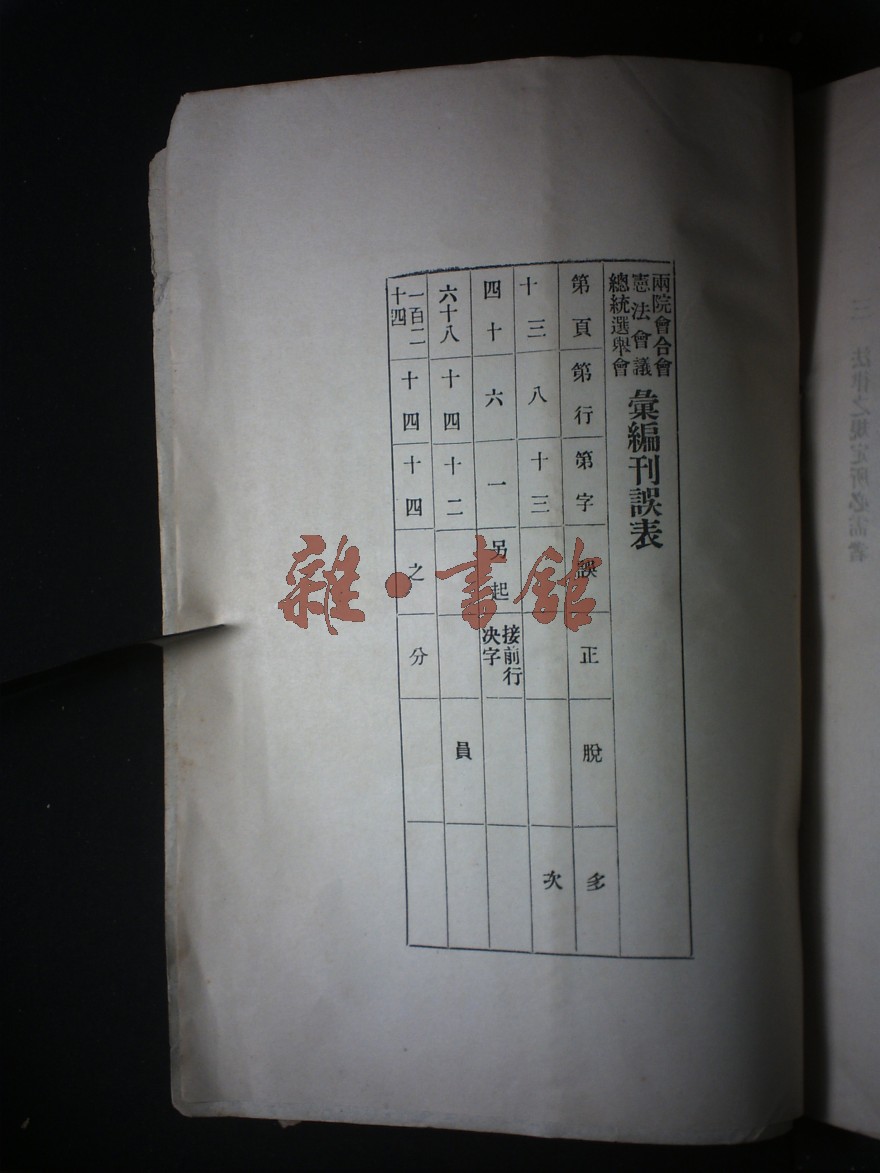 兩院會合會
憲法會議
總統選舉會
彙編刊誤表
第頁 第行 第字 誤 正 脫 多
十三 八 十三 次
四十 六 一 另起 接前行决字
六十八 十四 十二 員
一百二十四 十四 十四 之 分
雜·書館
三 法律之規定所必需者